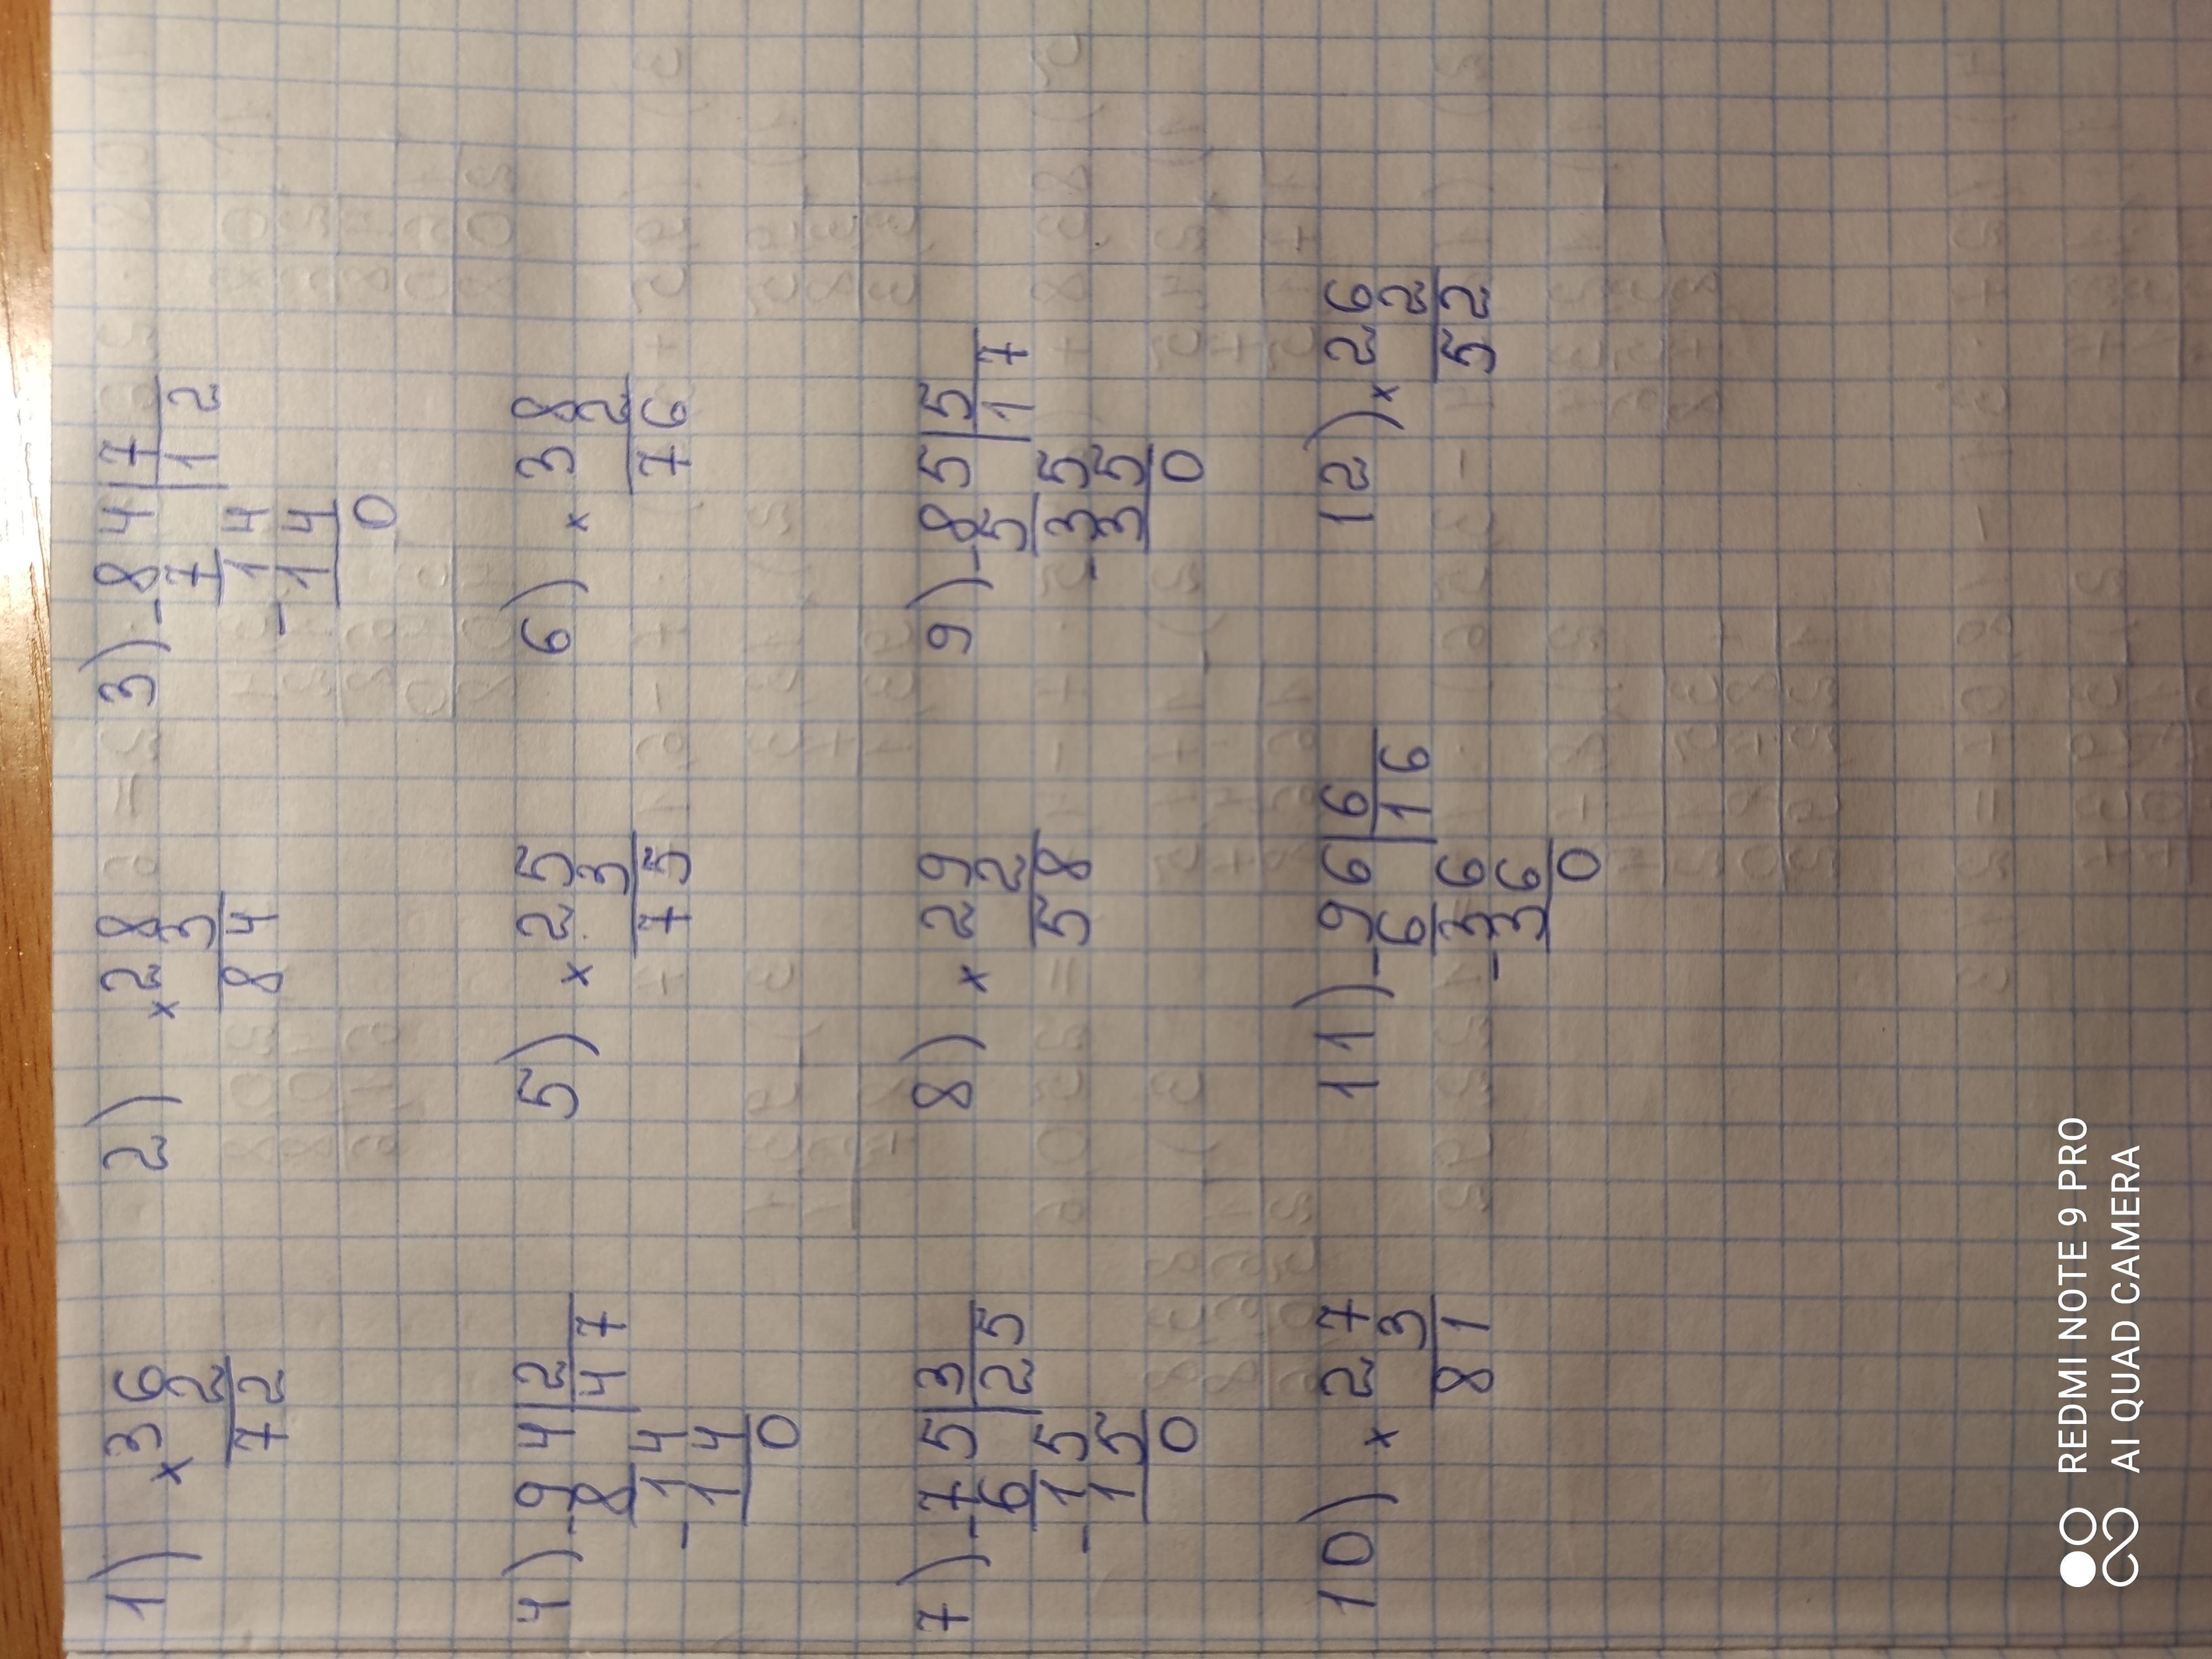 1) × 36 2) × 28 3) - 84 | 7
2 3 7 12
72 84 - 14
14
0
4) - 94 | 2 5) × 25 6) × 38
8 47 3 2
- 14 75 76
14
0
7) - 75 | 3 8) × 29 9) - 85 | 5
6 25 2 5 17
- 15 58 - 35
15 35
0 0
10) × 27 11) - 96 | 6 12) × 26
3 6 16 2
81 - 36 52
36
0
REDMI NOTE 9 PRO
AI QUAD CAMERA